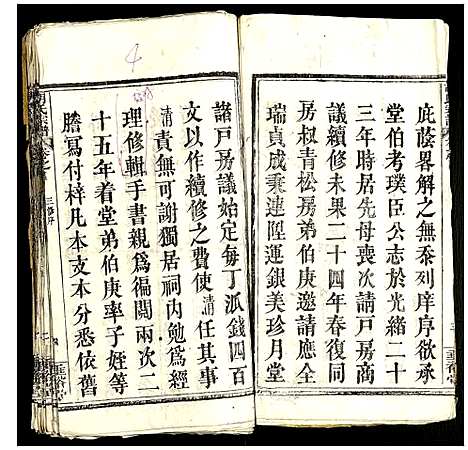 庇蔭畧解之無忝列庠序欲承
堂伯考璞臣公志於光緒二十
三年時居先母喪次請戸房商
議續修未果二十四年春復同
房叔青松房弟伯庚邀請應全
瑞貞成秉連陞運銀美珍月堂
諸戸房議始定每丁派錢四百
文以作續修之費使清任其事
清責無可謝獨居祠內勉爲經
理修輯手書親爲徧閲兩次二
十五年着堂弟伯庚率子姪等
謄寫付梓凡本支本分悉依舊
三修序
4